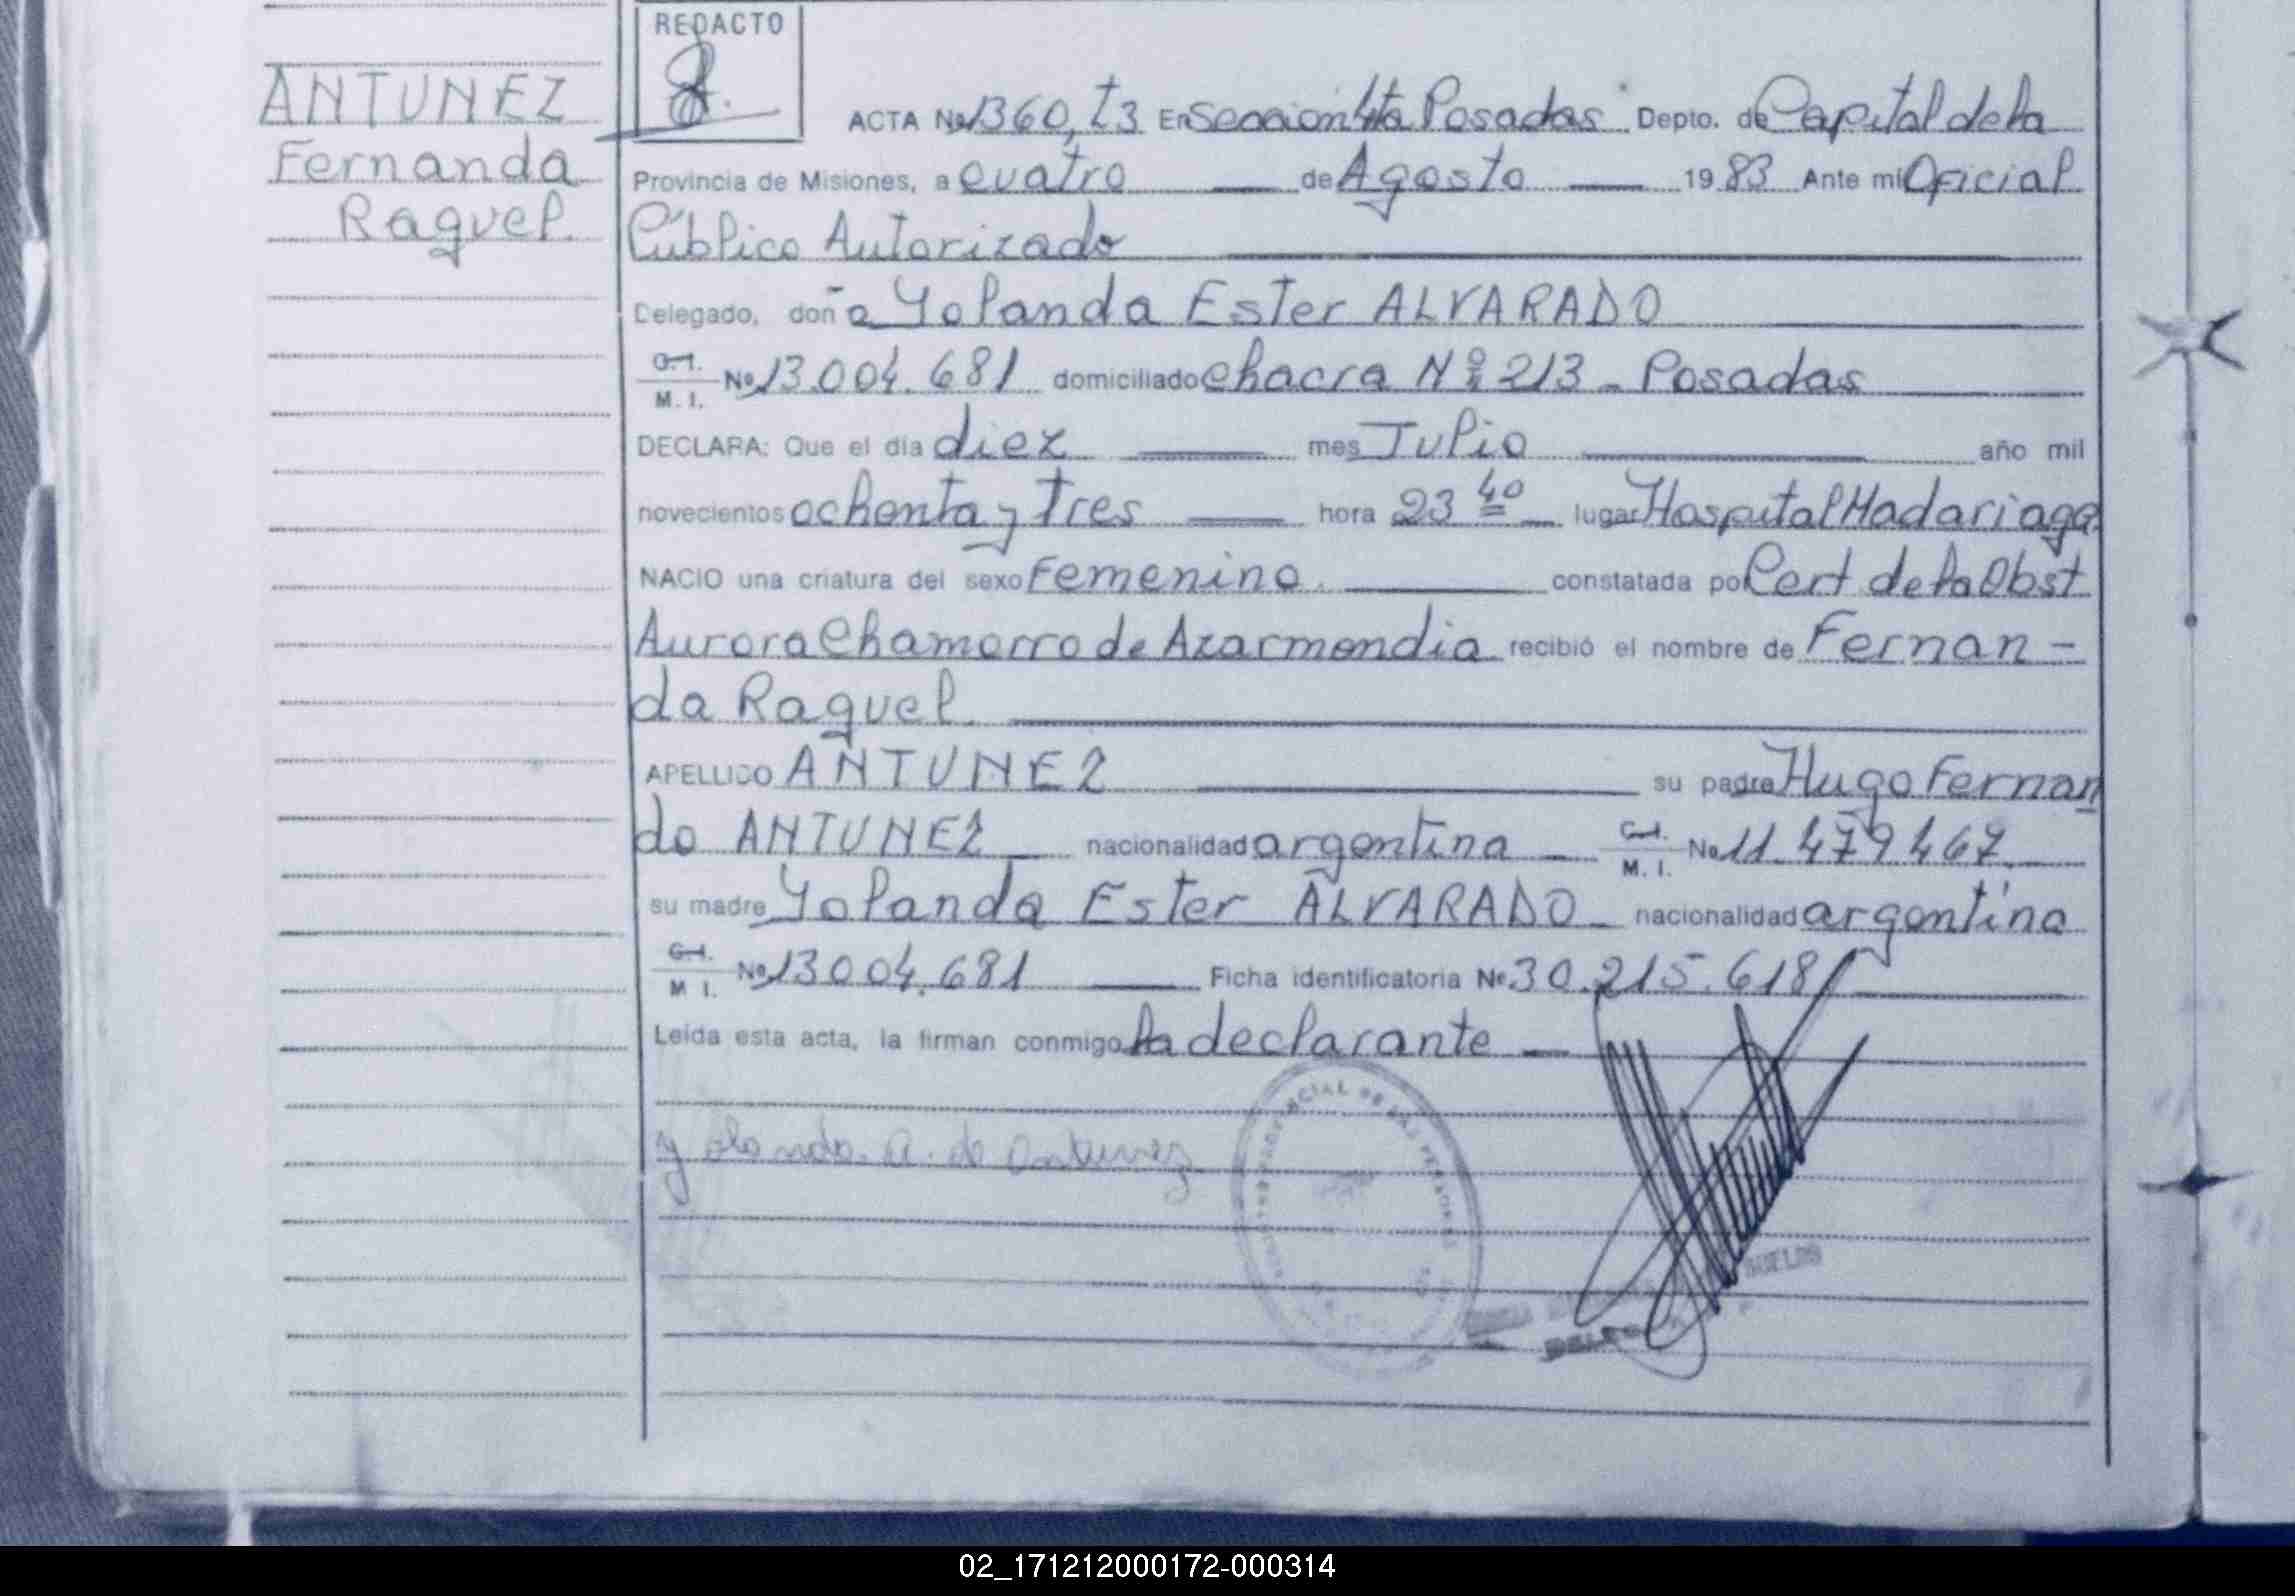 REDACTO
ANTUNEZ
Fernanda
Raquel.
ACTA No 1360, t3 En Sección 4ta Posadas Depto. de Capital de la
Provincia de Misiones, a cuatro de Agosto 1983 Ante mi Oficial
Público Autorizado
Delegado, doña Yolanda Ester ALVARADO
C.I. M. I. No 13.004.681 domiciliado chacra Nº 213 - Posadas
DECLARA: Que el día diez mes Julio año mil
novecientos ochenta y tres hora 23 40 lugar Hospital Madariaga
NACIO una criatura del sexo Femenino. constatada por Cert de la Obst
Aurora Chamorro de Azarmendia recibió el nombre de Fernan -
da Raquel.
APELLIDO ANTUNEZ su padre Hugo Fernan
do ANTUNEZ nacionalidad argentina C.I. M. I. No 11.479467
su madre Yolanda Ester ALVARADO nacionalidad argentina
C.I. M I. No 13004.681 Ficha identificatoria No 30.215.618
Leída esta acta, la firman conmigo la declarante
Yolanda. A. de Antunez
02_171212000172-000314